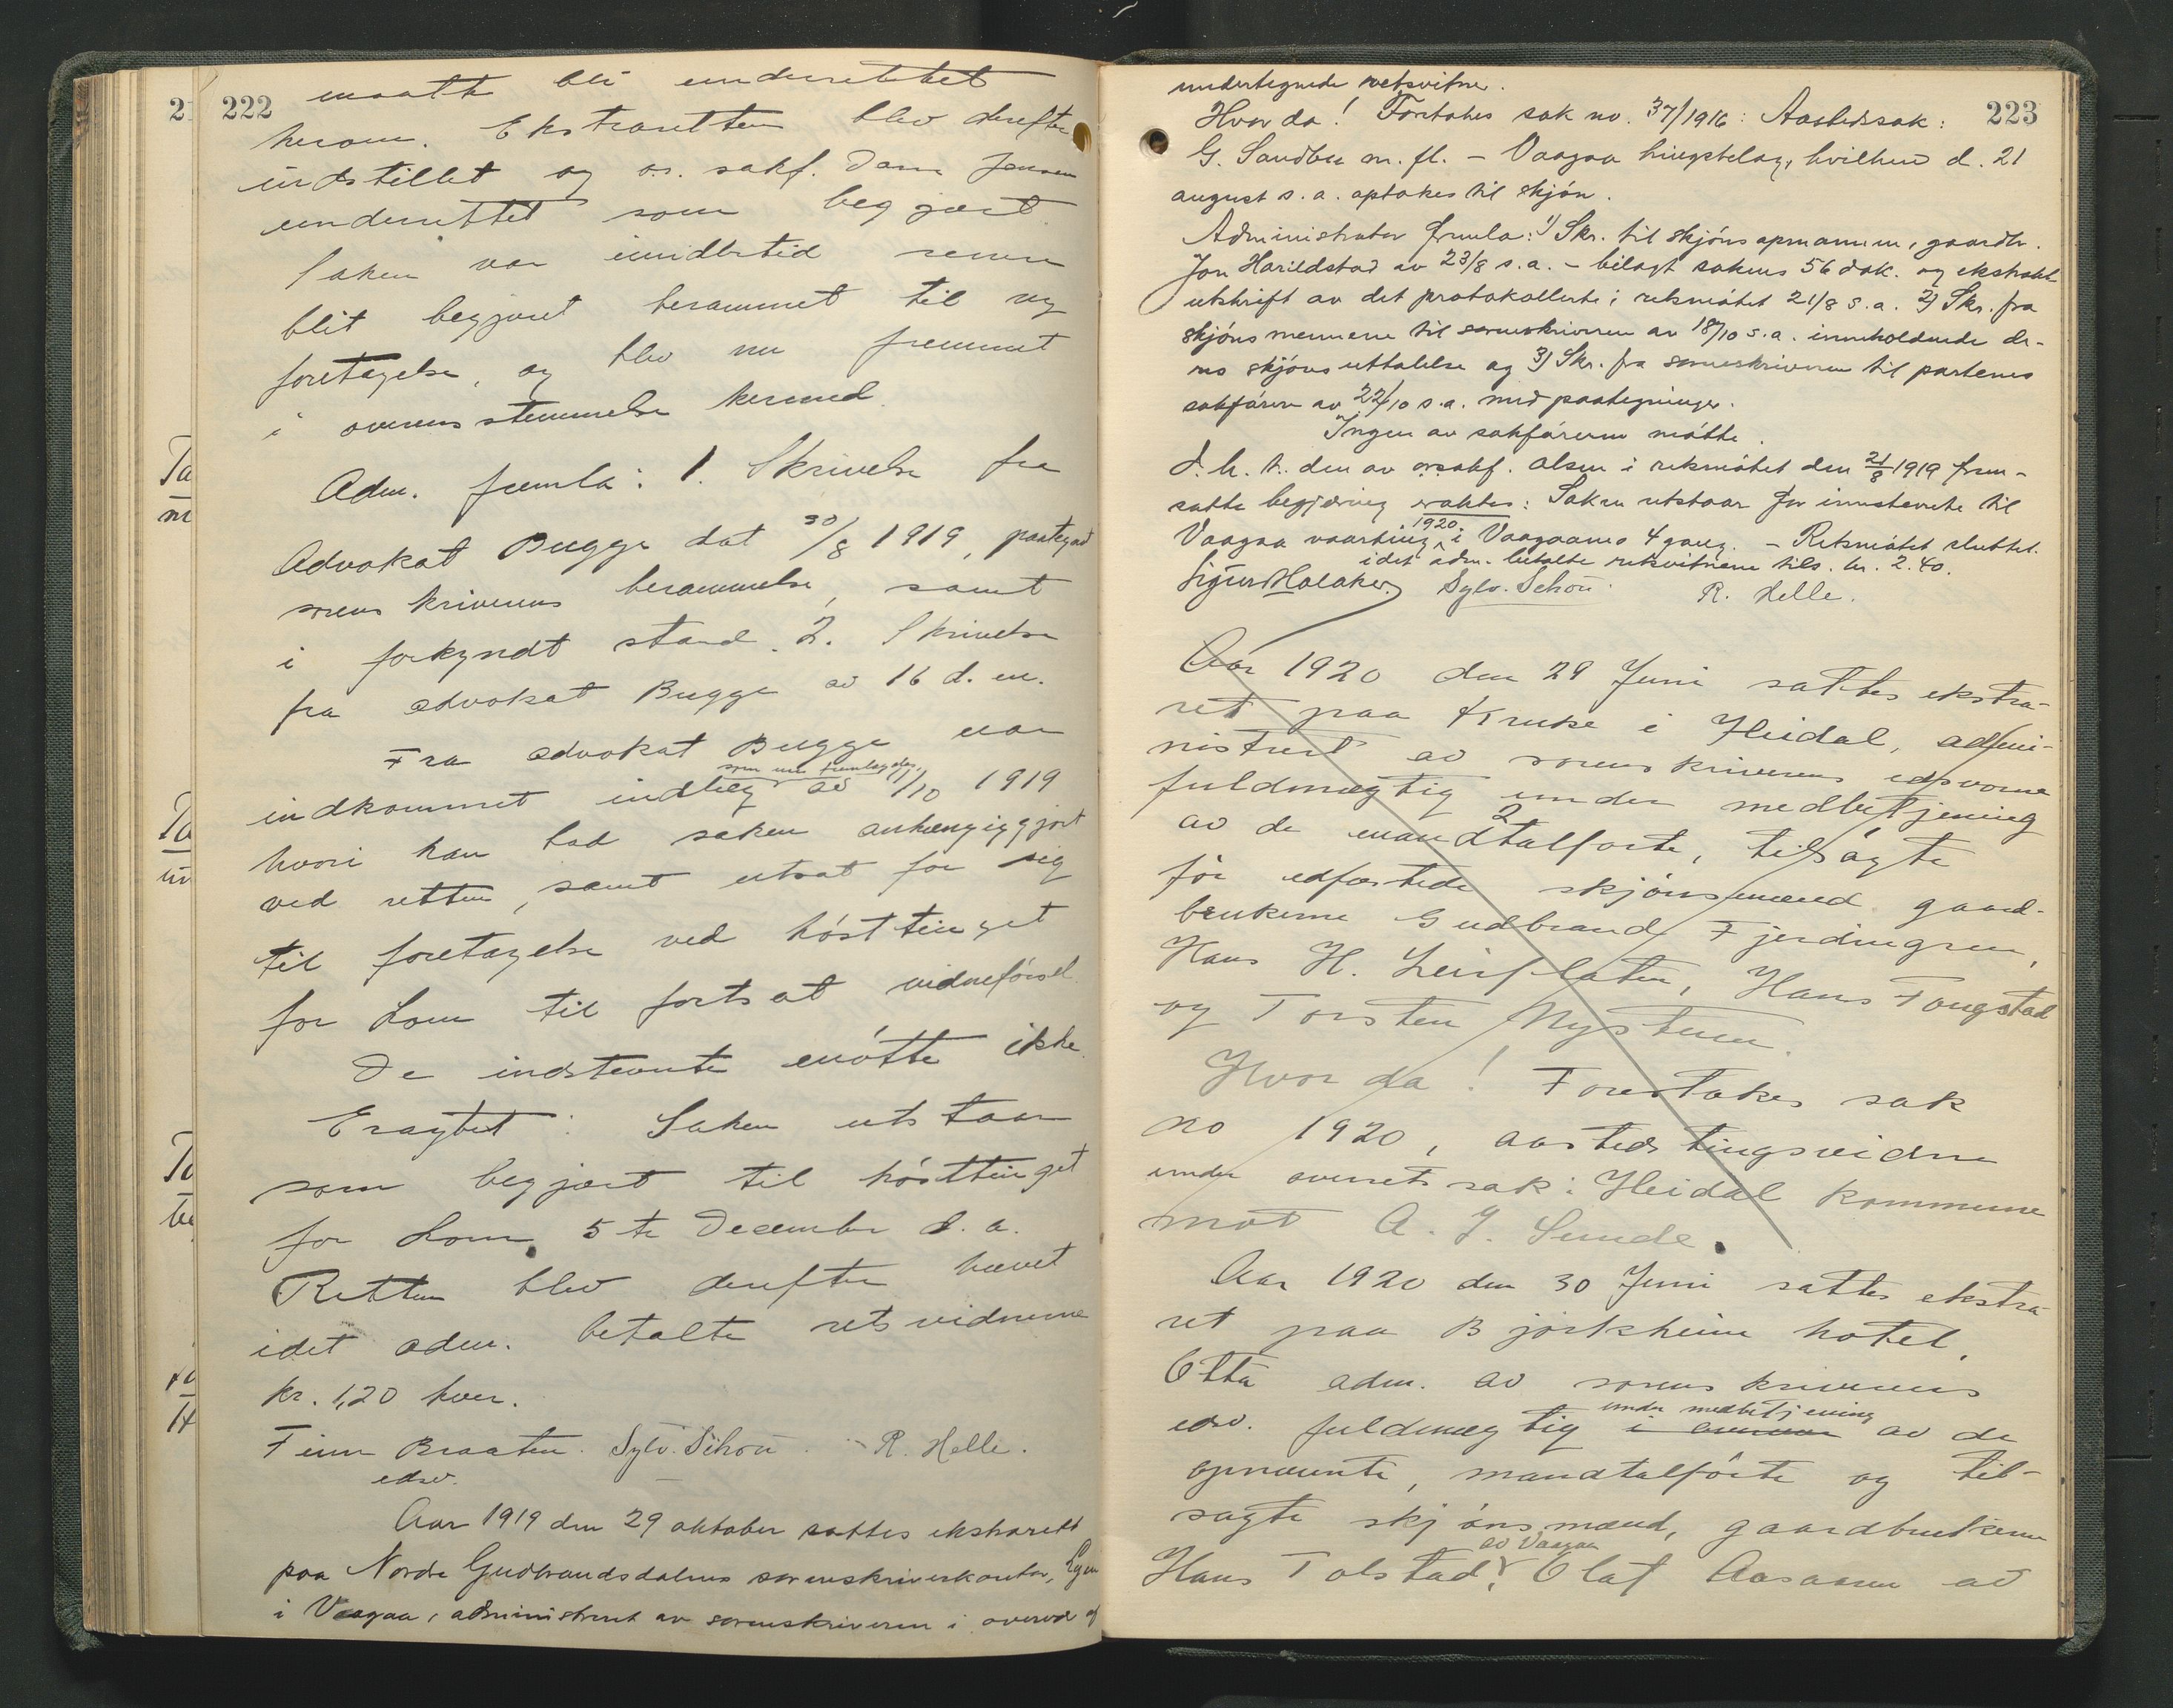 222
maatte bli underrettet
herom. Ekstraretten blev derefter
indstillet og o.r. sakf. Dann Jensen
underrettet som begjært.
Saken var imidlertid senere
blit begjæret berammet til ny
foretagelse, og blev nu fremmet
i overensstemmelse hermed.
Adm. fremla: 1. Skrivelse fra
Advokat Bugge dat 30/8 1919, paategnet
sorenskriverens berammelse, samt
i forkyndt stand. 2. Skrivelse
fra advokat Bugge av 16 d. m.
Fra advokat Bugge var
som nu fremlagdes,
indkommet indlæg av 1/10 1919
hvori han bad saken anhængiggjort
ved retten, samt utsat for sig
til foretagelse ved høsttinget
for Lom til fortsat vidneførsel.
De indstevnte møtte ikke.
Eragtet: Saken utstaar
som begjært til høsttinget
for Lom, 5te December d. a.
Retten blev derefter hævet
idet adm. betalte retsvidnerne
kr. 1,20 hver.
Finn Braaten. Sylv. Schou. R. Helle.
edsv.
Aar 1919 den 29 oktober sattes ekstrarett
paa Nordre Gudbrandsdalens sorenskriverkontor,
i Vaagaa, administrert av sorenskriveren i overvær af
223
undertegnede retsvitner.
Hvor da! Foretokes sak no. 37/1916: Aastedssak:
G. Sandbu m. fl. - Vaagaa hingstelag, hvilken d. 21
august s. a. optokes til skjøn.
Administrator fremla: 1) Skr. til skjønsopmannen, gaardbr.
Jon Harildstad av 23/8 s. a. - bilagt sakens 56 dok. og ekstrakt
utskrift av det protokollerte i retsmøtet 21/8 s. a. 2) Skr. fra
skjønsmennene til sorenskriveren av 18/10 s. a. inneholdende de-
res skjønsuttalelse og 3) Skr. fra sorenskriveren til partenes
sakførere av 22/10 s. a. med paategninger.
Ingen av sakførerne møtte.
I h. t. den av orsakf. Olsen i retsmøtet den 21/8 1919 frem-
satte begjæring eraktes: Saken utstaar for innstevnte til
1920
Vaagaa vaarting i Vaagaamo 4 gang. - Retsmøtet sluttet.
idet adm. betalte retsvitnene tils. kr. 2.40.
Sigurd Halaker. Sylv. Schou. R. Helle.
Aar 1920 den 29 Juni sattes ekstra-
ret paa Kruke i Heidal, admi-
nistrert av sorenskriverens edsvorne
fuldmægtig under medbetjening
2
av de mandtalførte, tilsagte
før edfæstede skjønsmænd gaard-
brukerne Gudbrand Fjerdingren,
Hans H. Leirflaten, Hans Tongstad
og Torsten Nystuen.
Hvor da! Foretokes sak
no 1920, aastedstingsvidne
under overretssak: Heidal kommune
mot A. J. Sunde.
Aar 1920 den 30 Juni sattes ekstra
ret paa Bjørkheim hotel,
Otta adm. av sorenskriverens
under medbetjening
edsv. fuldmægtig i av de
opnævnte, mandtalførte og til-
sagte skjønsmænd, gaardbrukerne
av Vaagaa
Hans Tolstad, Olaf Aasaaren av